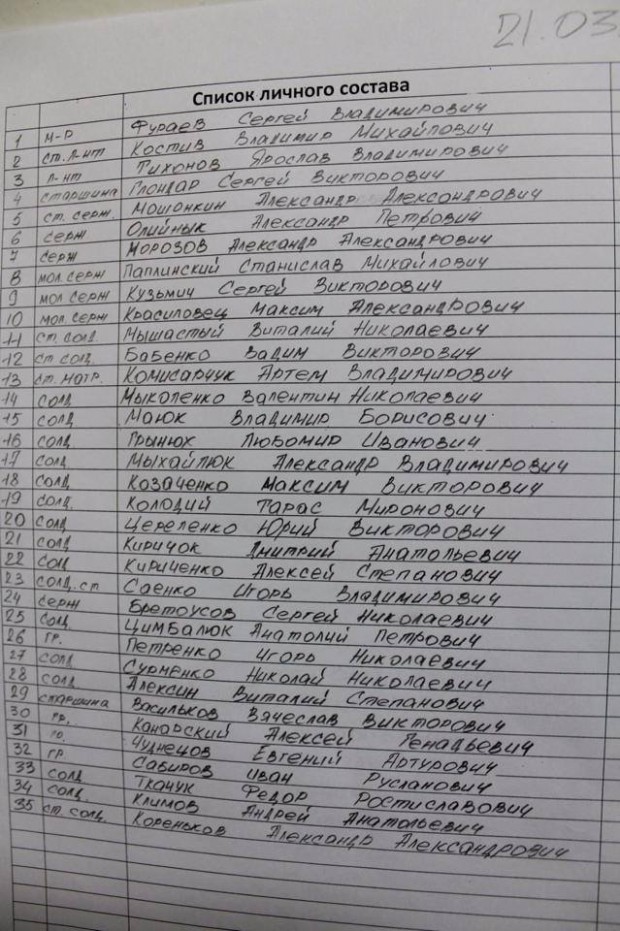 21.03
Список личного состава
1 м-р Фураев Сергей Владимирович
2 ст.л-нт Костив Владимир Михайлович
3 л-нт Тихонов Ярослав Владимирович
4 старшина Глондар Сергей Викторович
5 ст. серж. Мошонкин Александр Александрович
6 серж Олийнык Александр Петрович
7 серж Морозов Александр Александрович
8 мол. серж Паплинский Станислав Михайлович
9 мол. серж Кузьмич Сергей Викторович
10 мол. серж Красиловец Максим Александрович
11 ст. солд Мышастый Виталий Николаевич
12 ст солд. Бабенко Вадим Викторович
13 ст. матр. Комисарчук Артем Владимирович
14 солд Мыколенко Валентин Николаевич
15 солд Маюк Владимир Борисович
16 солд Грынюх Любомир Иванович
17 солд Мыхайлюк Александр Владимирович
18 солд Козаченко Максим Викторович
19 солд. Колодий Тарас Миронович
20 солд Цереленко Юрий Викторович
21 солд Киричок Дмитрий Анатольевич
22 солд Кириченко Алексей Степанович
23 солд. ст Саенко Игорь Владимирович
24 серж Бретоусов Сергей Николаевич
25 солд. Цимбалюк Анатолий Петрович
26 гр. Петренко Игорь Николаевич
27 солд Сурменко Николай Николаевич
28 солд Алексин Виталий Степанович
29 старшина Васильков Вячеслав Викторович
30 гр. Канарский Алексей Генадьевич
31 гр. Чуднецов Евгений Артурович
32 гр Сабиров Иван Русланович
33 солд Ткачук Федор Ростиславович
34 солд. Климов Андрей Анатольевич
35 ст. солд. Кореньков Александр Александрович